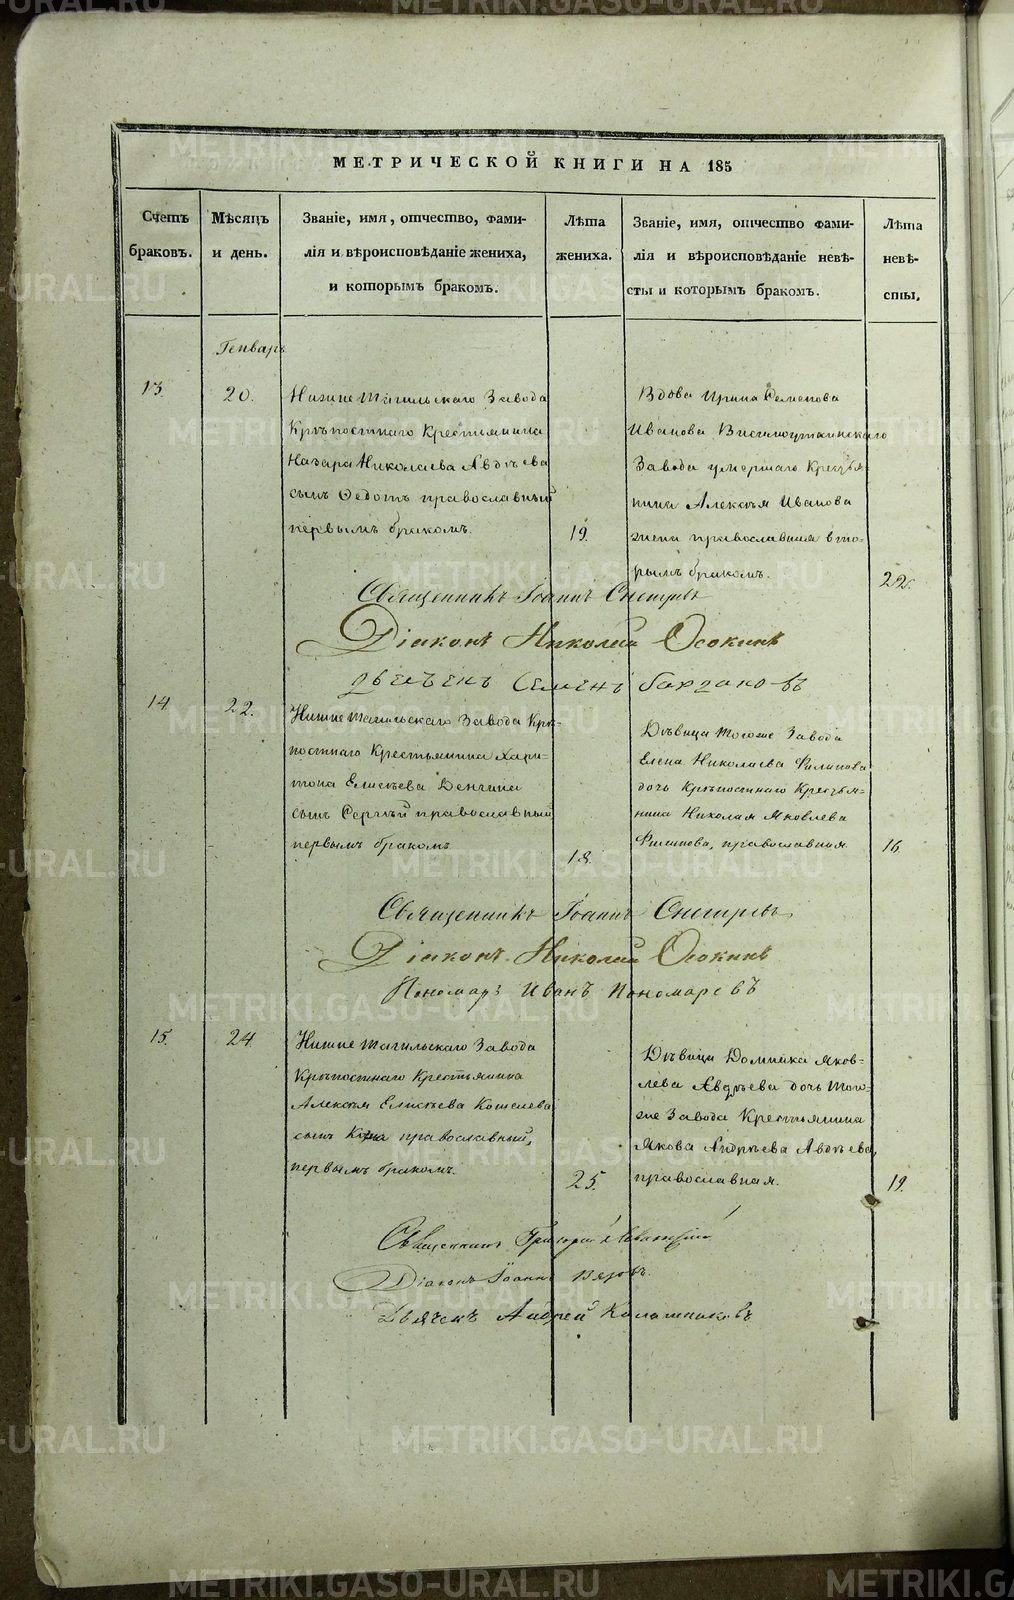 МЕТРИЧЕСКОЙ КНИГИ НА 185
Счетъ браковъ.
Мѣсяцъ и день.
Званіе, имя, отчество, фами-
лія и вѣроисповѣданіе жениха,
и которымъ бракомъ.
Лѣта жениха.
Званіе, имя, отчество фами-
лія и вѣроисповѣданіе невѣ-
сты и которымъ бракомъ.
Лѣта невѣ-
сты.
Генварь
13.
20.
Нижне Тагильскаго Завода
Крѣпостнаго Крестьянина
Назара Николаева Авдѣева
сынъ Ѳедотъ православный
первымъ бракомъ.
19.
Вдова Ирина Семенова
Иванова Висимоуткинскаго
Завода умершаго Крестья-
нина Алексѣя Иванова
жена православная вто-
рымъ бракомъ.
22.
Священникъ Іоаннъ Снегиревъ
Діаконъ Николай Осокинъ
Семенъ
14
22.
Нижне Тагильскаго Завода Крѣ-
постнаго Крестьянина Хари-
тона Елисѣева Денгина
сынъ Сергѣй православный
первымъ бракомъ
18.
Дѣвица тогоже Завода
Елена Николаева Филипова
дочь Крѣпостнаго Крестья-
нина Николая Яковлева
Филипова, православная
16
Священникъ Іоаннъ Снегиревъ
Діаконъ Николай Осокинъ
Пономарь Иванъ Пономаревъ
15.
24.
Нижне Тагильскаго Завода
Крѣпостнаго Крестьянина
Алексѣя Елисѣева Кошелева
сынъ православный,
первымъ бракомъ.
25.
Дѣвица Домника Яков-
лева Авдѣева дочь того-
же Завода Крестьянина
Якова Андрѣева Авдѣева,
православная.
19.
Священникъ Григорій
Діаконъ Іоаннъ
Дьячекъ Андрей Калашниковъ
METRIKI.GASO-URAL.RU